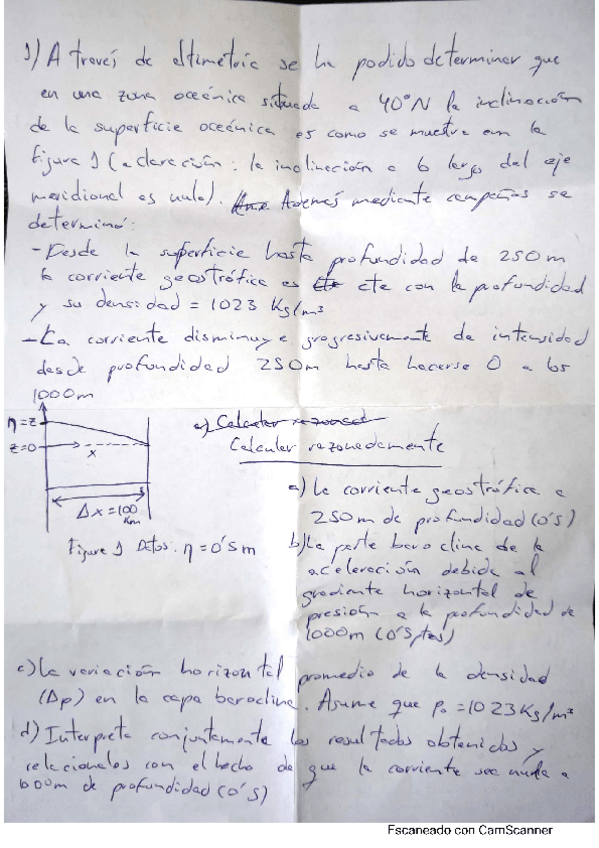 1) A través de altimetría se ha podido determinar que
en una zona oceánica situada a 40°N la inclinación
de la superficie oceánica es como se muestra em la
Figura 1 (aclaración: la inclinación a lo largo del eje
meridional es nula). Además mediante campañas se
determinó:
- Desde la superficie hasta profundidad de 250m
la corriente geostrófica es cte con la profundidad
y su densidad = 1023 Kg/m³
- La corriente disminuye progresivamente de intensidad
desde profundidad 250m hasta hacerse 0 a los
1000m
η=z
z=0
x
Δx=100
Km
Figura 1 Datos. η=0'5m
a) Calcular razonad
Calcular razonadamente
a) La corriente geostrófica a
250m de profundidad (0'5)
b) La parte baroclina de la
aceleración debida al
gradiente horizontal de
presión a la profundidad de
1000m (0'5 ptos)
c) La variación horizontal promedio de la densidad
(Δρ) en la capa baroclina. Asume que ρ₀ = 1023 Kg/m³
d) Interpreta conjuntamente los resultados obtenidos y
relacionalos con el hecho de que la corriente sea nula a
1000m de profundidad (0'5)
Escaneado con CamScanner